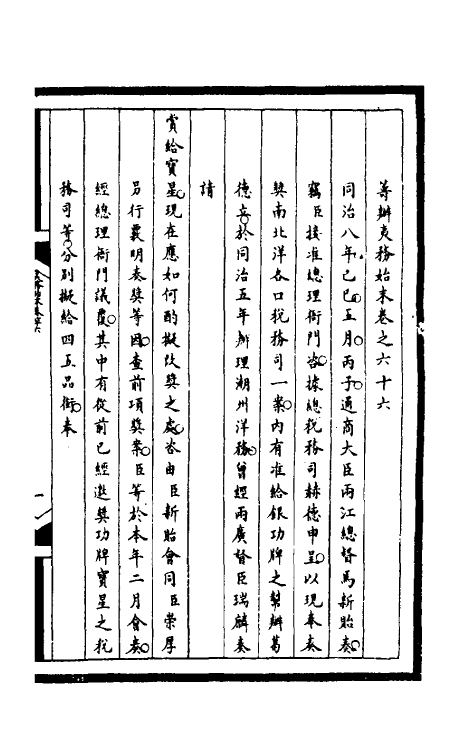 籌辦夷務始末卷之六十六
同治八年己巳五月丙子通商大臣兩江總督馬新貽奏
竊臣接准總理衙門咨據總稅務司赫德申呈以現奉奏
獎南北洋各口稅務司一案內有准給銀功牌之幫辦葛
德立於同治五年辦理潮州洋務曾經兩廣督臣瑞麟奏
請
賞給寶星現在應如何酌擬改獎之處咨由臣新貽會同臣崇厚
另行覈明奏獎等因查前項獎案臣等於本年二月會奏
經總理衙門議覆其中有從前已經邀獎功牌寶星之稅
務司等分別擬給四五品銜奉